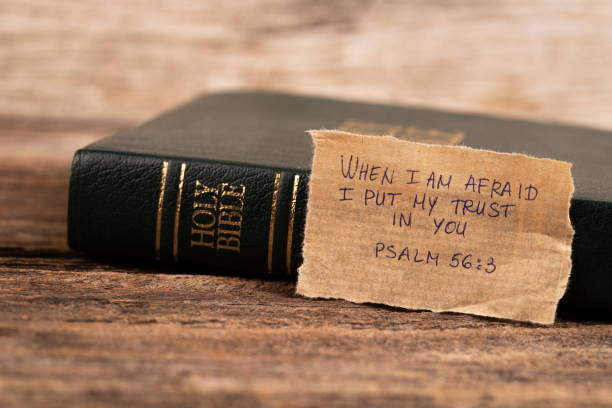 HOLY
BIBLE
WHEN I AM AFRAID
I PUT MY TRUST
IN YOU
PSALM 56:3